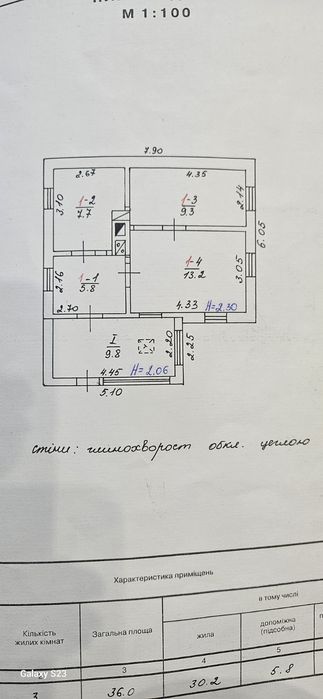 М 1:100
7.90
2.67
4.35
3.10
1-2
7.7
1-3
9.3
2.14
6.05
2.16
1-1
5.8
1-4
13.2
3.05
2.70
4.33
H=2.30
I
9.8
2.20
2.25
4.45
H=2.06
5.10
стіни: глинохворост обкл. цеглою
Характеристика приміщень
в тому числі
Кількість
жилих кімнат
Загальна площа
жила
допоміжна
(підсобна)
3
4
5
3
36.0
30.2
5.8
Galaxy S23